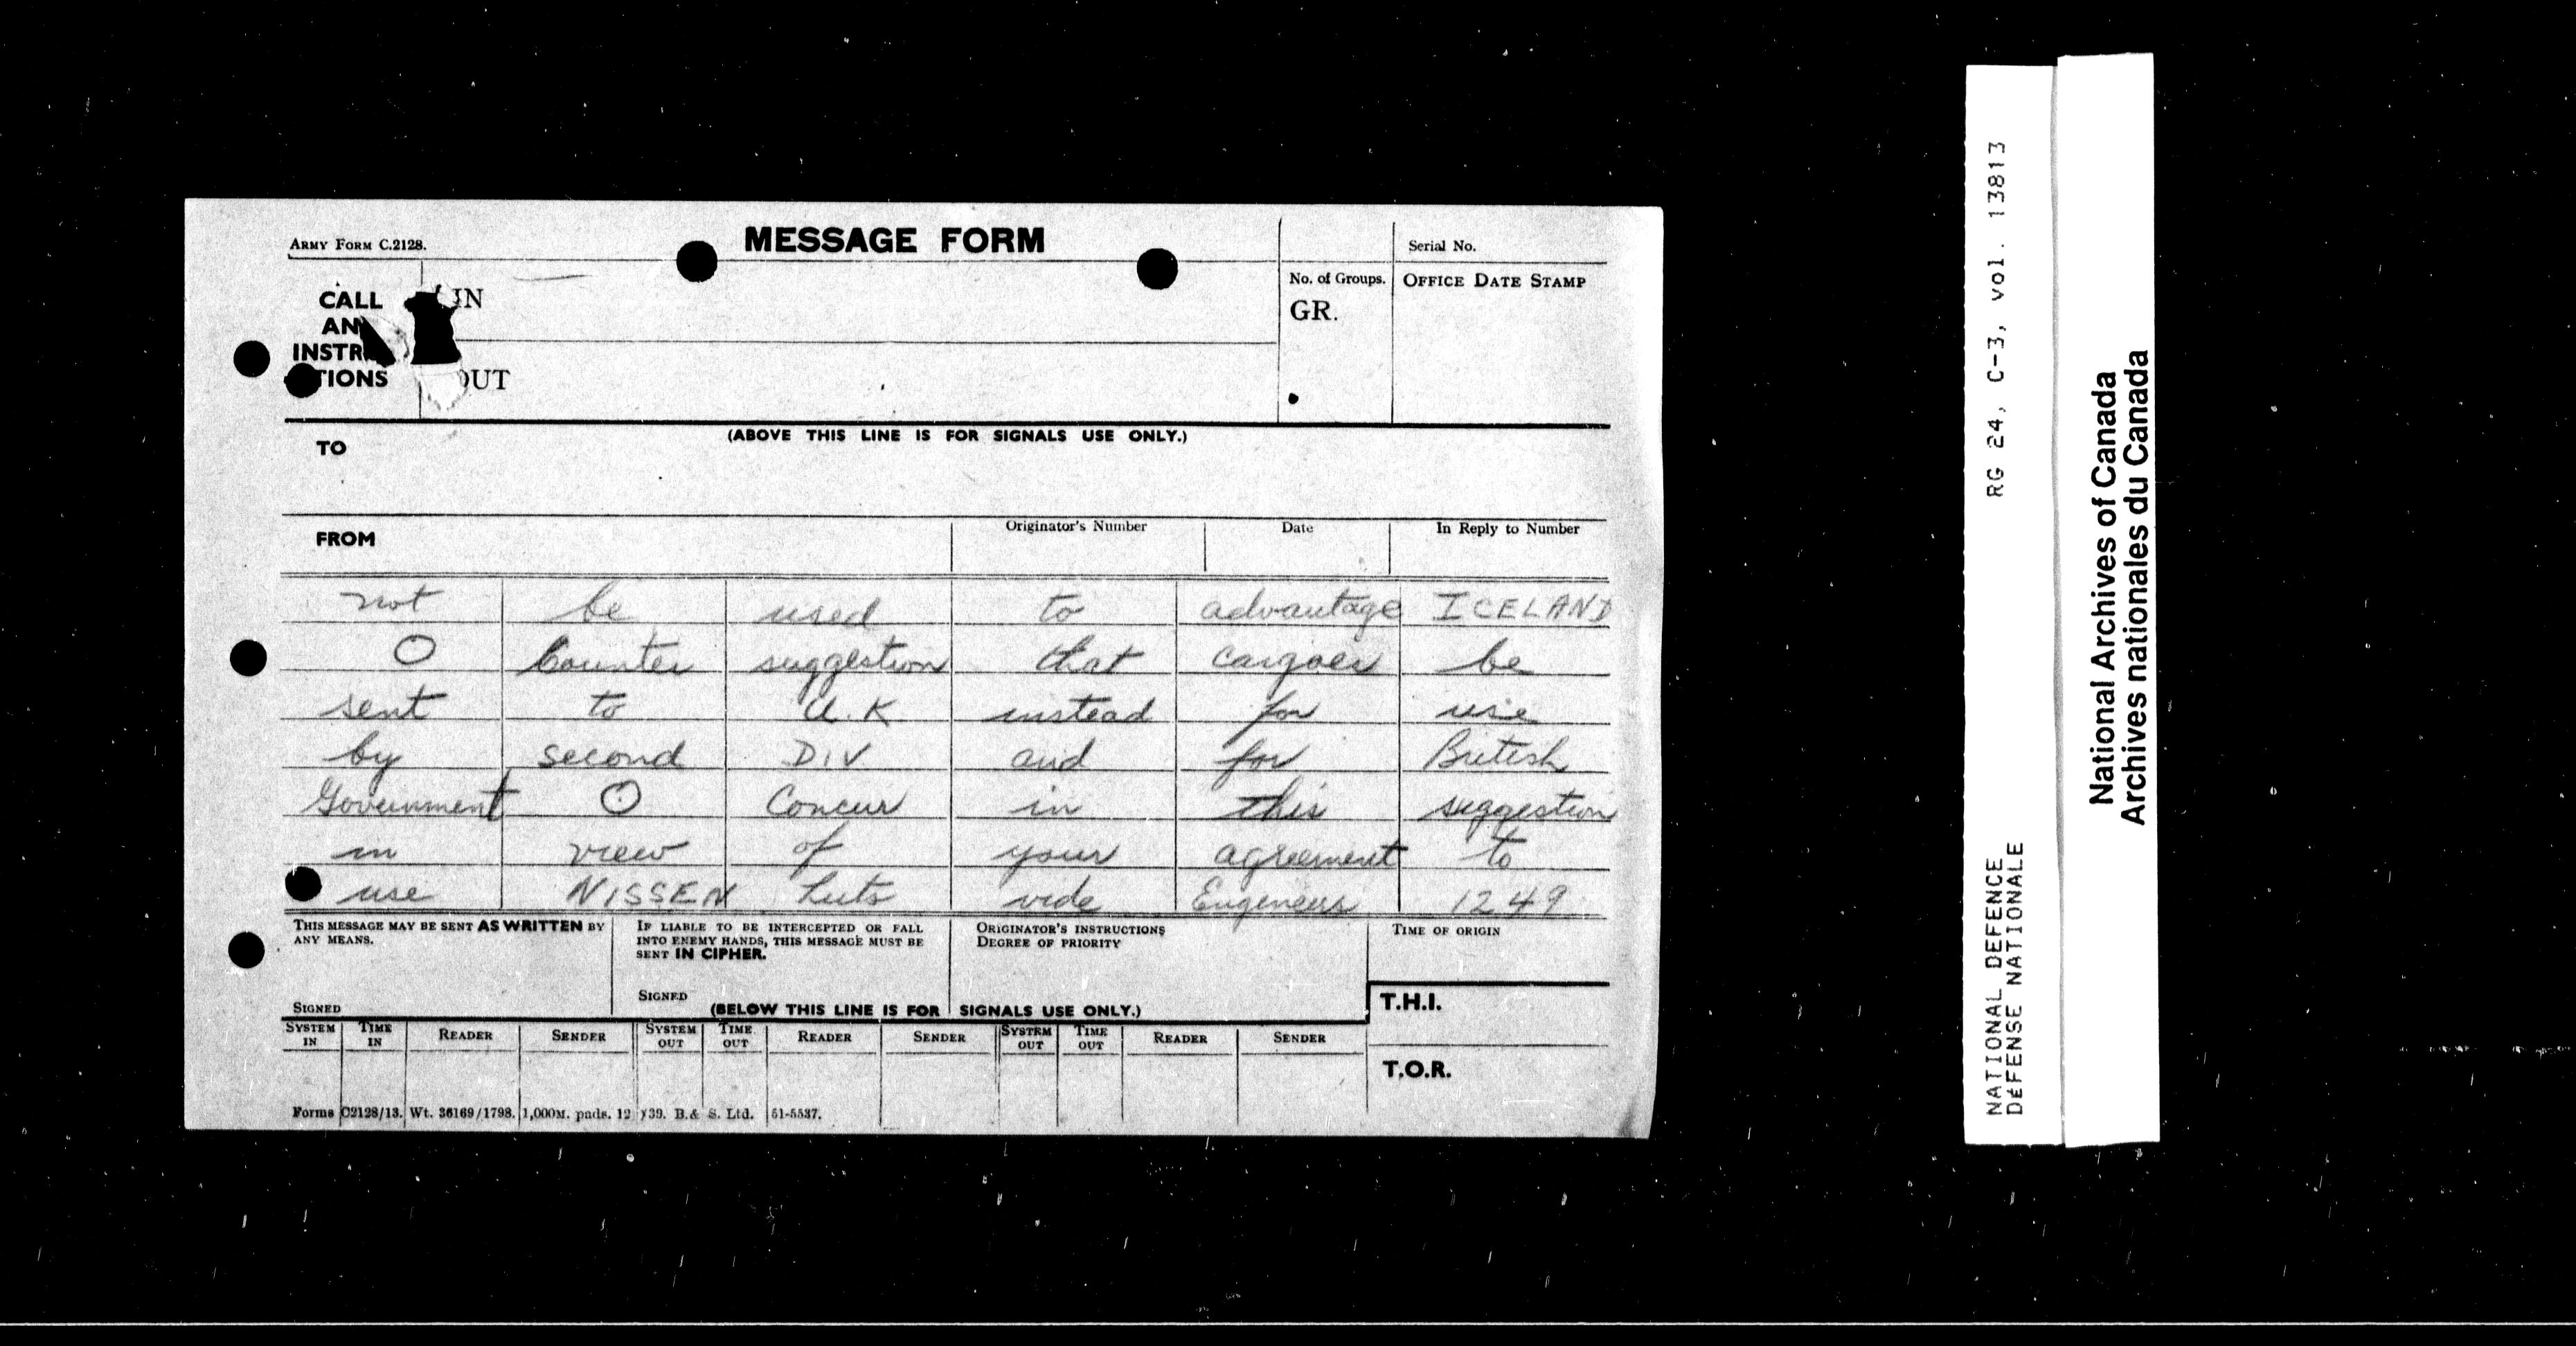 ARMY FORM C.2128.
MESSAGE FORM
Serial No.
CALL
AN
INSTR
TIONS
IN
OUT
No. of Groups.
GR.
OFFICE DATE STAMP
(ABOVE THIS LINE IS FOR SIGNALS USE ONLY.)
TO
FROM
Originator's Number
Date
In Reply to Number
not be used to advantage ICELAND
O Counter suggestion that cargoes be
sent to U.K instead for use
by second DIV and for British
Government O Concur in this suggestion
in view of your agreement to
use NISSEN huts vide Engineers 1249
THIS MESSAGE MAY BE SENT AS WRITTEN BY
ANY MEANS.
SIGNED
IF LIABLE TO BE INTERCEPTED OR FALL
INTO ENEMY HANDS, THIS MESSAGE MUST BE
SENT IN CIPHER.
SIGNED
ORIGINATOR'S INSTRUCTIONS
DEGREE OF PRIORITY
TIME OF ORIGIN
(BELOW THIS LINE IS FOR SIGNALS USE ONLY.)
T.H.I.
SYSTEM IN TIME IN READER SENDER SYSTEM OUT TIME OUT READER SENDER SYSTEM OUT TIME OUT READER SENDER
T.O.R.
Forms C2128/13. Wt. 36169/1798. 1,000M. pads. 12/39. B.& S. Ltd. 51-5537.
RG 24, C-3, vol. 13813
NATIONAL DEFENCE
DÉFENSE NATIONALE
National Archives of Canada
Archives nationales du Canada